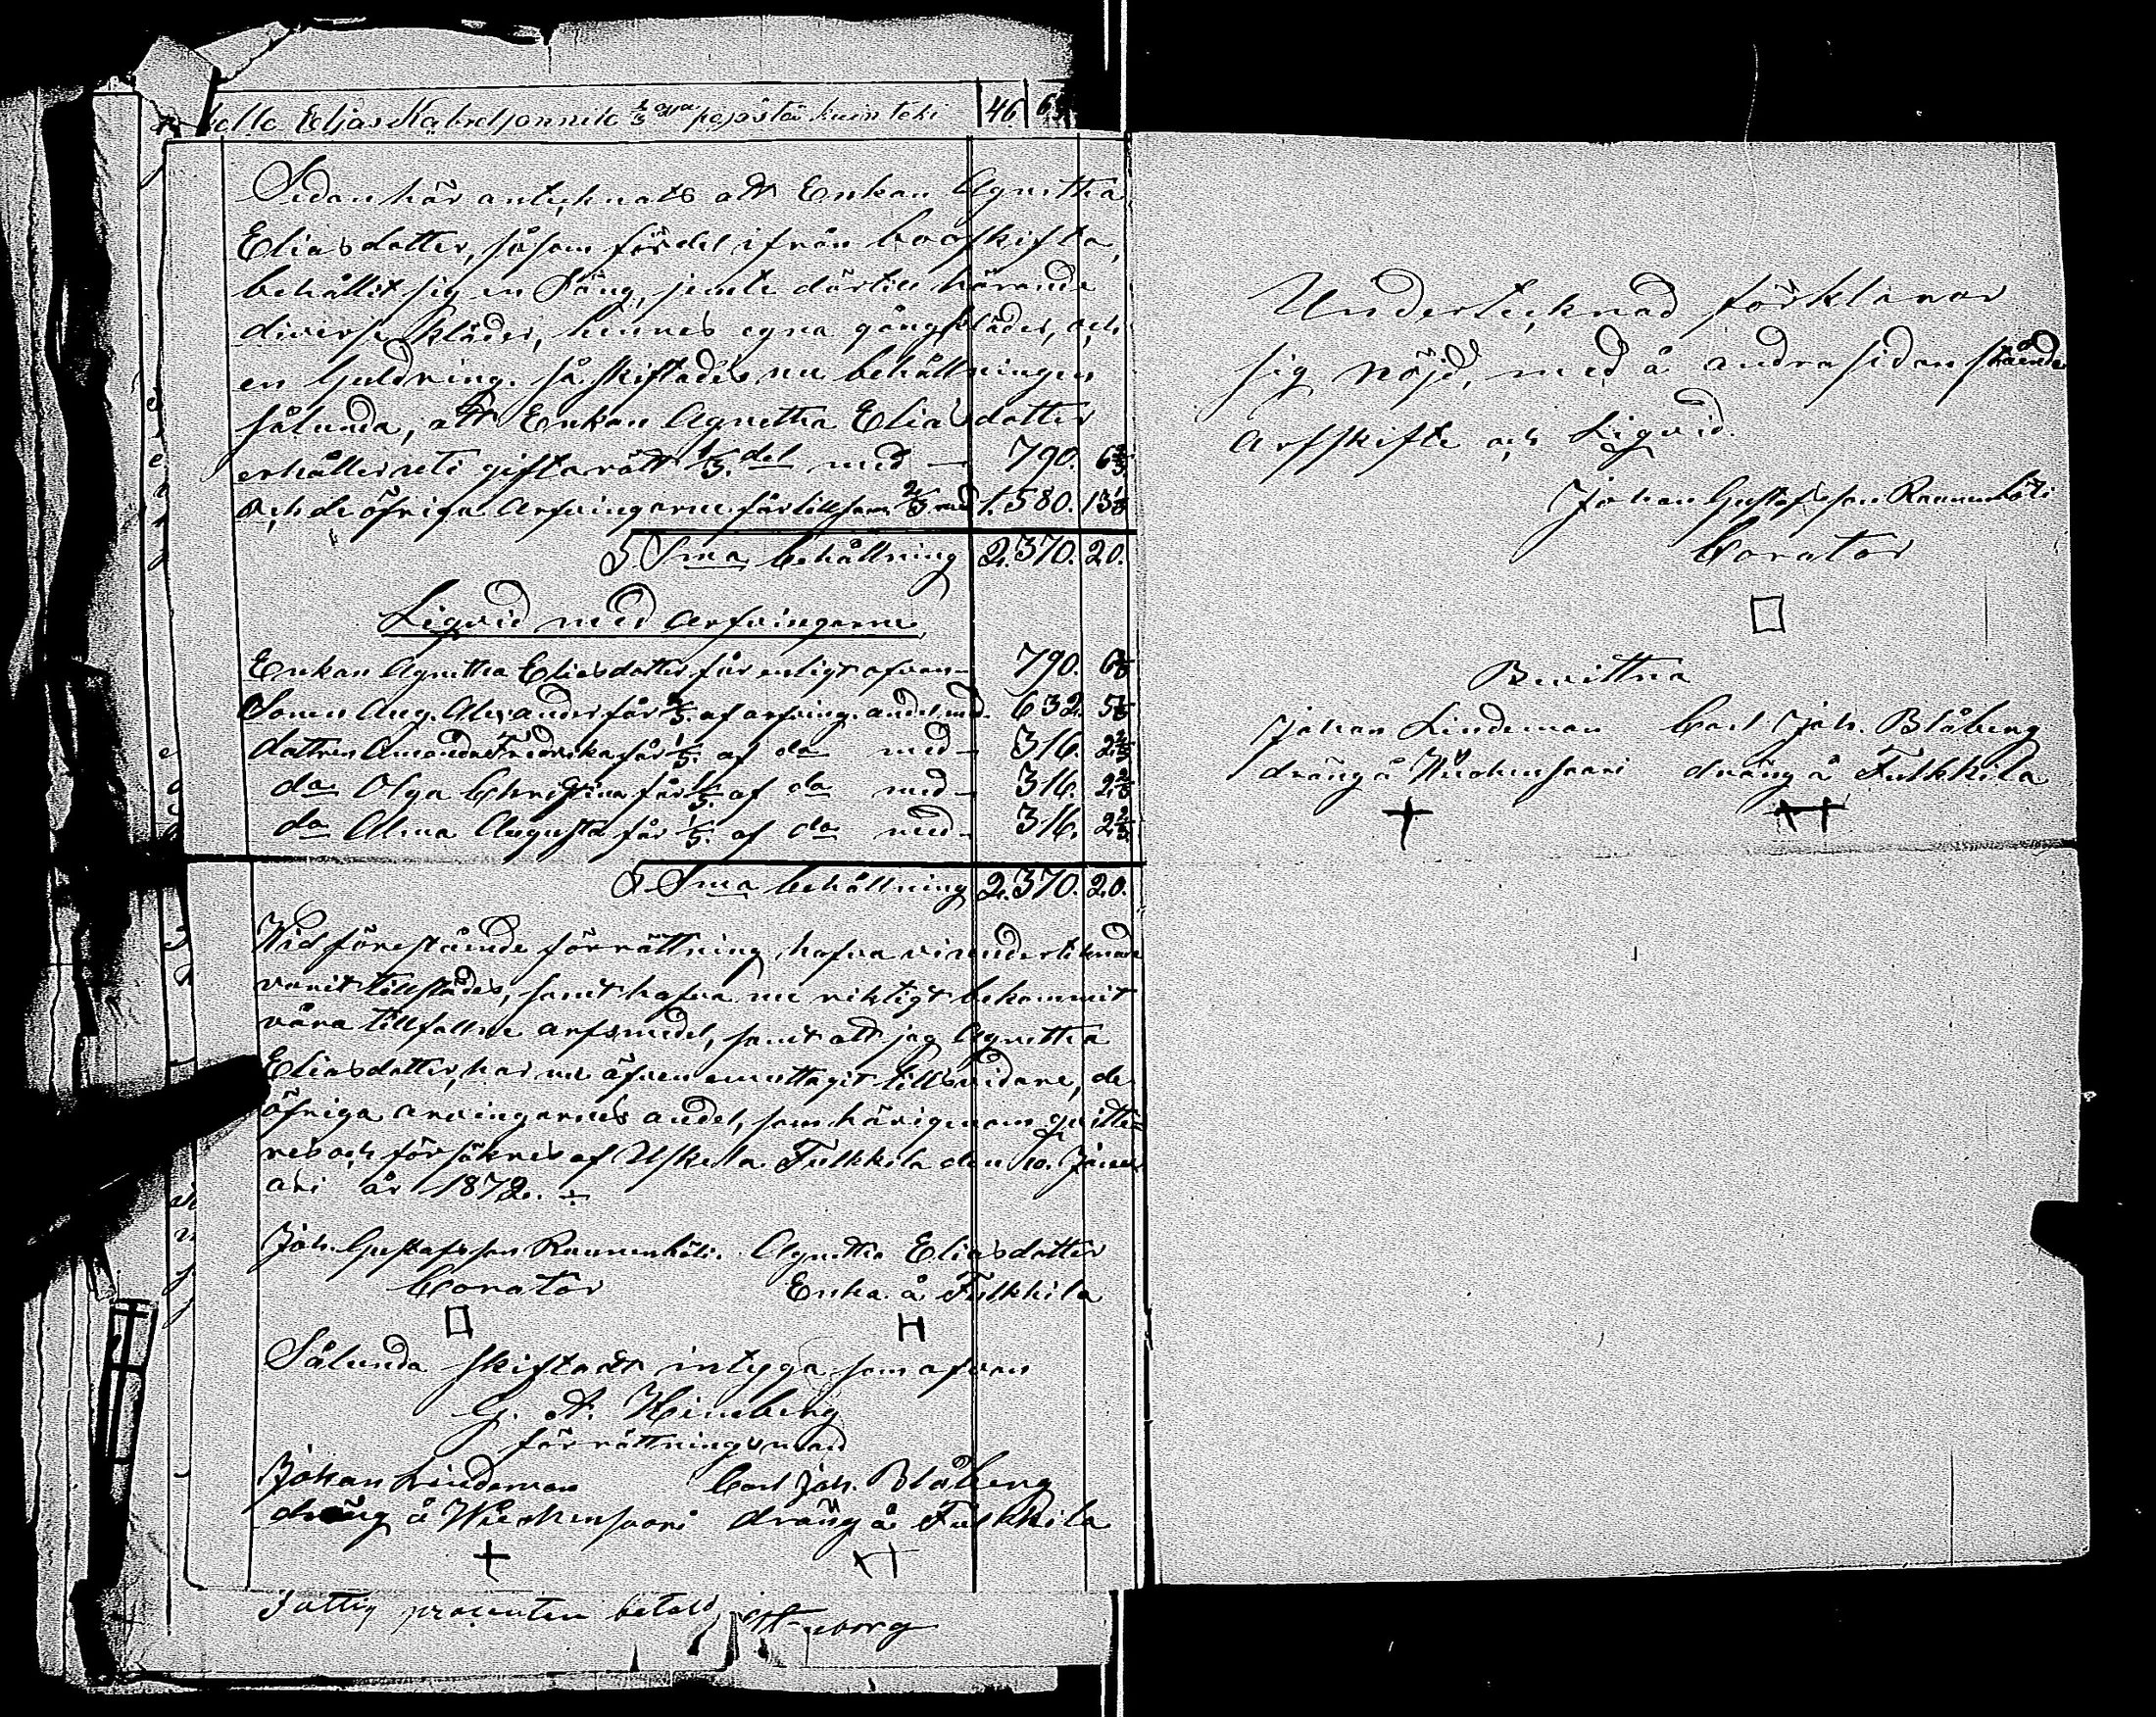 Elias Kabrelsonnile 1/3 osa kuin teki 46 6
Sedan här antecknats att Enkan Agnetha
Eliasdotter, såsom fördel ifrån booskifta,
behållit sig en Säng, jemte därtill hörande
diverse kläder, hennes egna gångkläder, och
en Guldring. så skiftades nu behållningen
sålunda, att Enkan Agnetha Eliasdotter
erhåller uti giftorätt 1/3. del med — 790. 6 2/3
och de öfriga Arfvingarne får tillsam 2/3 med 1.580. 13 1/3
S. Sma behållning 2.370. 20.
Liqvid med Arfvingarne,
Enkan Agnetha Eliasdotter får enligt ofvan — 790. 6 2/3
Sonen Aug. Alexander får 2/5. af arfving. andel med. 632. 5 1/3
dottren Amanda Fredrika får 1/5. af do med — 316. 2 2/3
do Olga Christina får 1/5. af do med — 316. 2 2/3
do Alma Augusta får 1/5. af do med — 316. 2 2/3
S. Sma behållning 2.370. 20.
Wid förestående förrättning hafva vi undertecknade
varit tillstädes, samt hafva nu riktigt bekommit
våra tillfallne arfsmedel, samt att jag Agnetha
Eliasdotter, har nu äfven emottagit tillsvidare, de
öfriga arvingarnes andel, som härigenom qvitte=
res och försäkres af Uskela Fulkkila den 10. Janu
ari år 1872. ÷
Joh. Gustafsson Raunenköti. Agnetha Eliasdotter
Corator Enka å Fulkkila
Sålunda skiftadt intyga som ofvan
G. A. Hineberg
förrättningsman
Johan Lindeman Carl Joh. Blåberg
dräng å Wiickensaari dräng å Fulkkila
Fattig procenten betald
Undertecknad förklarar
sig nöjd, med å andra sidan stående
Arfskifte och Liqvid.
Johan Gustafsson Raunenköti
Corator
Bevittna
Johan Lindeman Carl Joh. Blåberg
dräng å Wiickensaari dräng å Fulkkila